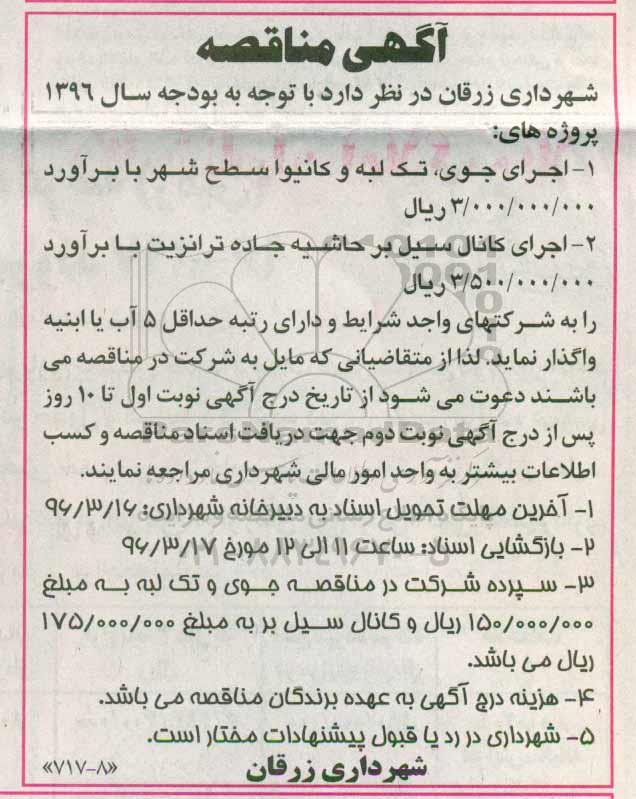 آگهی مناقصه
شهرداری زرقان در نظر دارد با توجه به بودجه سال ۱۳۹۶
پروژه های:
۱- اجرای جوی، تک لبه و کانیوا سطح شهر با برآورد
۳/۰۰۰/۰۰۰/۰۰۰ ریال
۲- اجرای کانال سیل بر حاشیه جاده ترانزیت با برآورد
۳/۵۰۰/۰۰۰/۰۰۰ ریال
را به شرکتهای واجد شرایط و دارای رتبه حداقل ۵ آب یا ابنیه
واگذار نماید. لذا از متقاضیانی که مایل به شرکت در مناقصه می
باشند دعوت می شود از تاریخ درج آگهی نوبت اول تا ۱۰ روز
پس از درج آگهی نوبت دوم جهت دریافت اسناد مناقصه و کسب
اطلاعات بیشتر به واحد امور مالی شهرداری مراجعه نمایند.
۱- آخرین مهلت تحویل اسناد به دبیرخانه شهرداری: ۹۶/۳/۱۶
۲- بازگشایی اسناد: ساعت ۱۱ الی ۱۲ مورخ ۹۶/۳/۱۷
۳- سپرده شرکت در مناقصه جوی و تک لبه به مبلغ
۱۵۰/۰۰۰/۰۰۰ ریال و کانال سیل بر به مبلغ ۱۷۵/۰۰۰/۰۰۰
ریال می باشد.
۴- هزینه درج آگهی به عهده برندگان مناقصه می باشد.
۵- شهرداری در رد یا قبول پیشنهادات مختار است.
شهرداری زرقان «۷۱۷-۸»